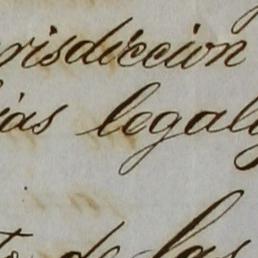 risdiccion
ias legal
to de las